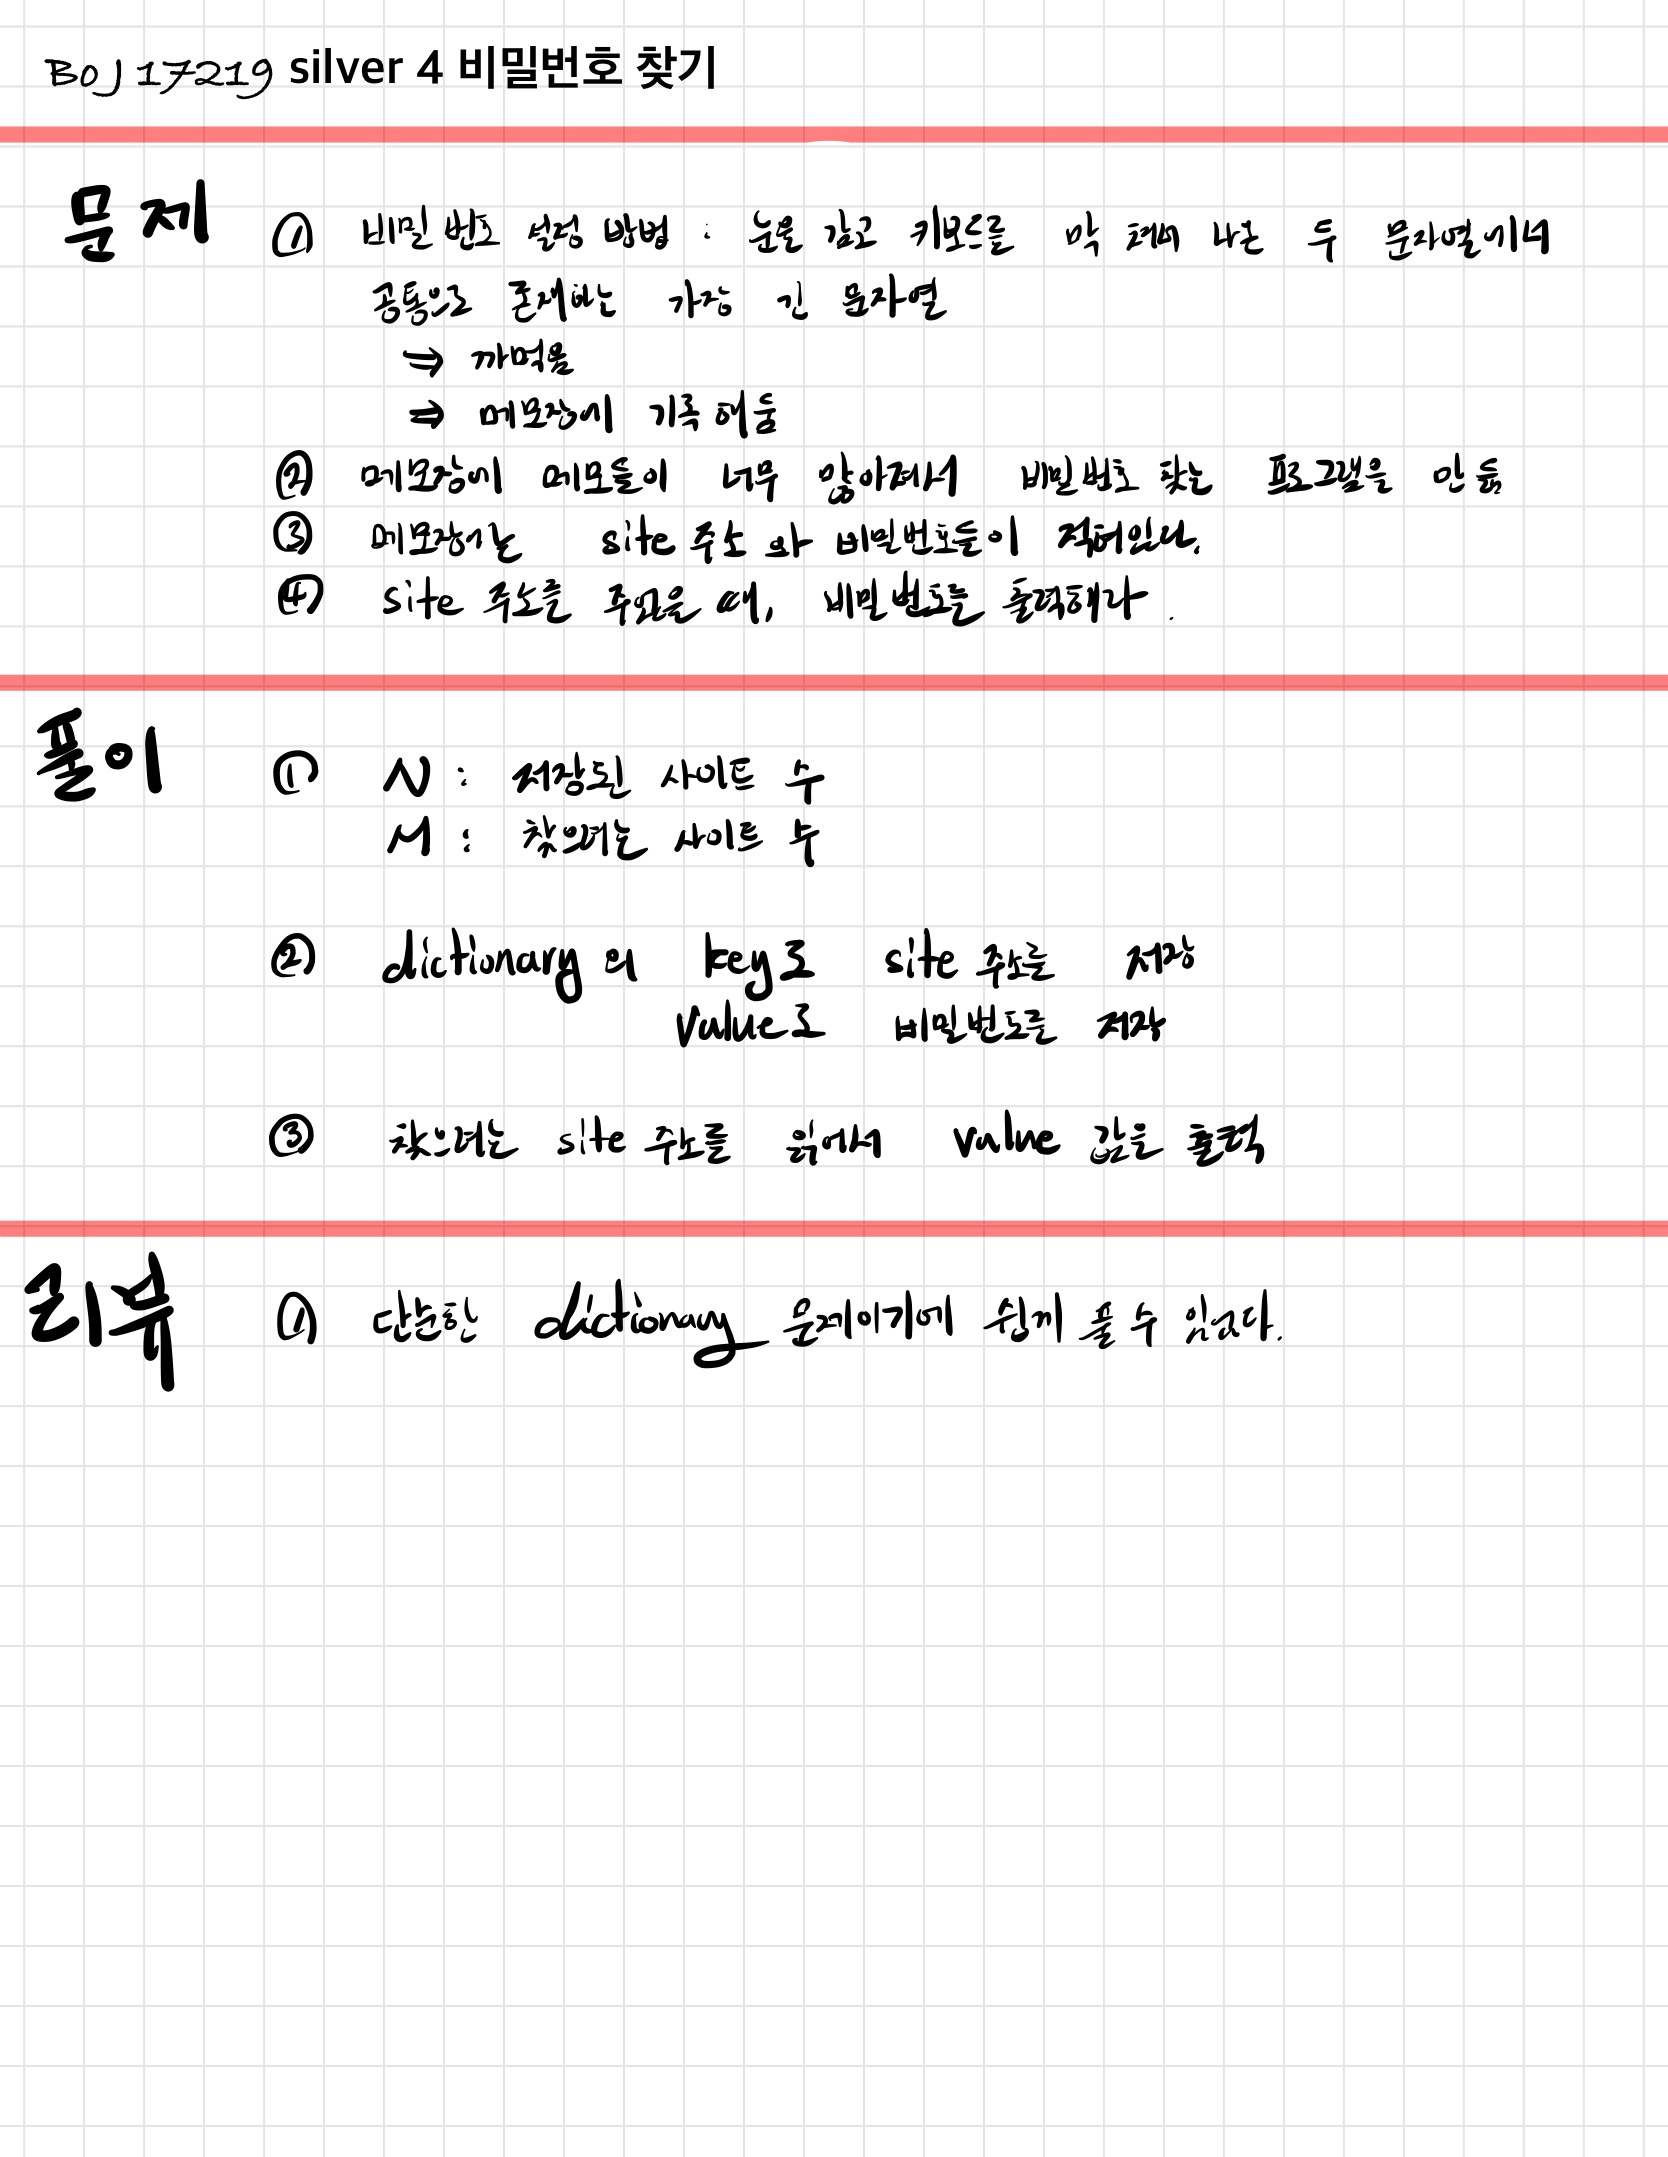 BOJ 17219 silver 4 비밀번호 찾기
문제 ① 비밀번호 설정 방법 : 눈을 감고 키보드를 막 쳐서 나온 두 문자열에서
공통으로 존재하는 가장 긴 문자열
⇒ 까먹음
⇒ 메모장에 기록해둠
② 메모장에 메모들이 너무 많아져서 비밀번호 찾는 프로그램을 만듦
③ 메모장에는 site 주소와 비밀번호들이 적혀있다.
④ site 주소를 주었을 때, 비밀번호를 출력해라.
풀이 ① N : 저장된 사이트 수
M : 찾으려는 사이트 수
② dictionary의 key로 site 주소를 저장
value로 비밀번호를 저장
③ 찾으려는 site 주소를 읽어서 value 값을 출력
리뷰 ① 단순한 dictionary 문제이기에 쉽게 풀 수 있었다.